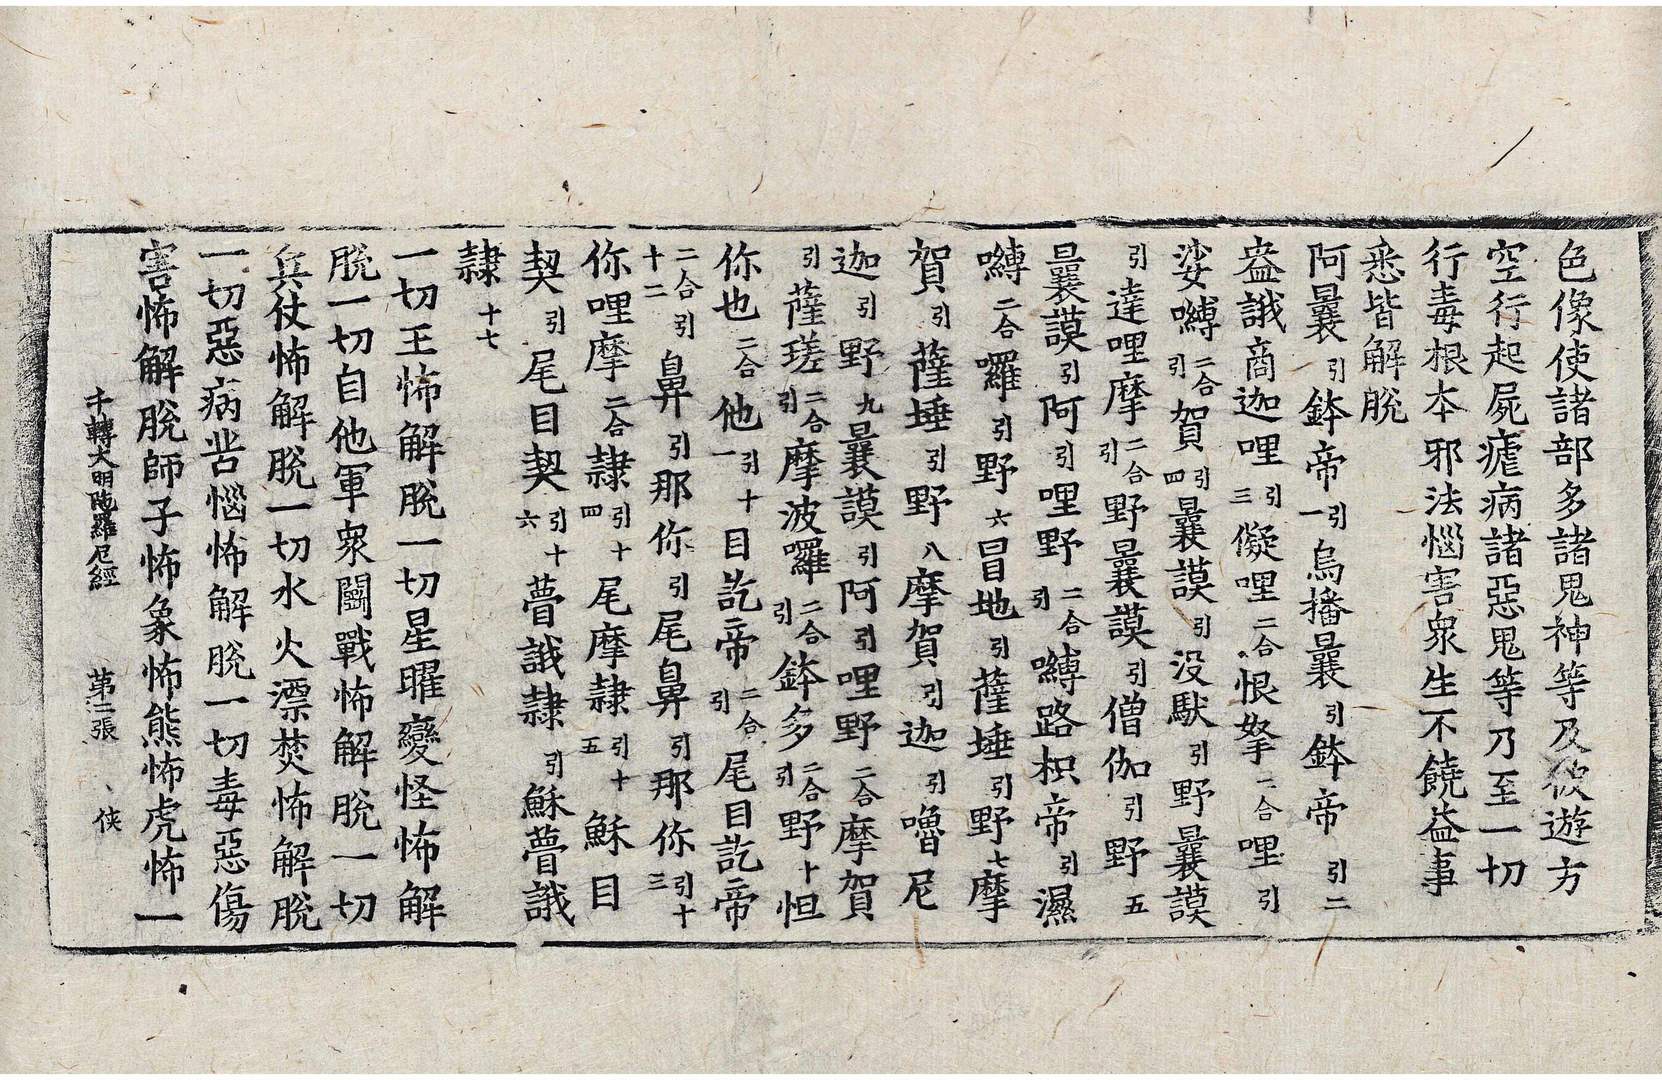 色像使諸部多諸鬼神等及彼遊方
空行起屍瘧病諸惡鬼等乃至一切
行毒根本邪法惱害衆生不饒益事
悉皆解脫
阿曩引鉢帝引一烏播曩引鉢帝引二
盎誐商迦哩引三儗哩二合恨拏二合哩引
娑嚩二合引賀引四曩謨引没馱引野曩謨
引達哩摩二合引野曩謨引僧伽引野五
曩謨引阿引哩野二合引嚩路枳帝引濕
嚩二合囉引野六冒地引薩埵引野七摩
賀引薩埵引野八摩賀引迦引嚕尼
迦引野九曩謨引阿引哩野二合摩賀
引薩瑳二合引摩波囉二合引鉢多二合引野十怛
你也二合他引十一目訖帝二合引尾目訖帝
二合引十二鼻引那你引尾鼻引那你引十三
你哩摩二合隷引十四尾摩隷引十五穌目
契引尾目契引十六瞢誐隷引穌瞢誐
隷十七
一切王怖解脫一切星曜變怪怖解
脫一切自他軍衆鬪戰怖解脫一切
兵仗怖解脫一切水火漂焚怖解脫
一切惡病苦惱怖解脫一切毒惡傷
害怖解脫師子怖象怖熊怖虎怖一
千轉大明陁羅尼經 第二張 俠